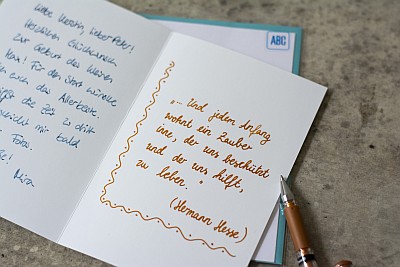 Liebe Kerstin, lieber Peter!
Herzlichen Glückwunsch
zur Geburt des kleinen
Für den Start wünsche
ich euch das Allerbeste.
die Zeit zu dritt
mir bald
Fotos.
Mira
"... Und jedem Anfang
wohnt ein Zauber
inne, der uns beschützt
und der uns hilft,
zu leben."
(Hermann Hesse)
ABC